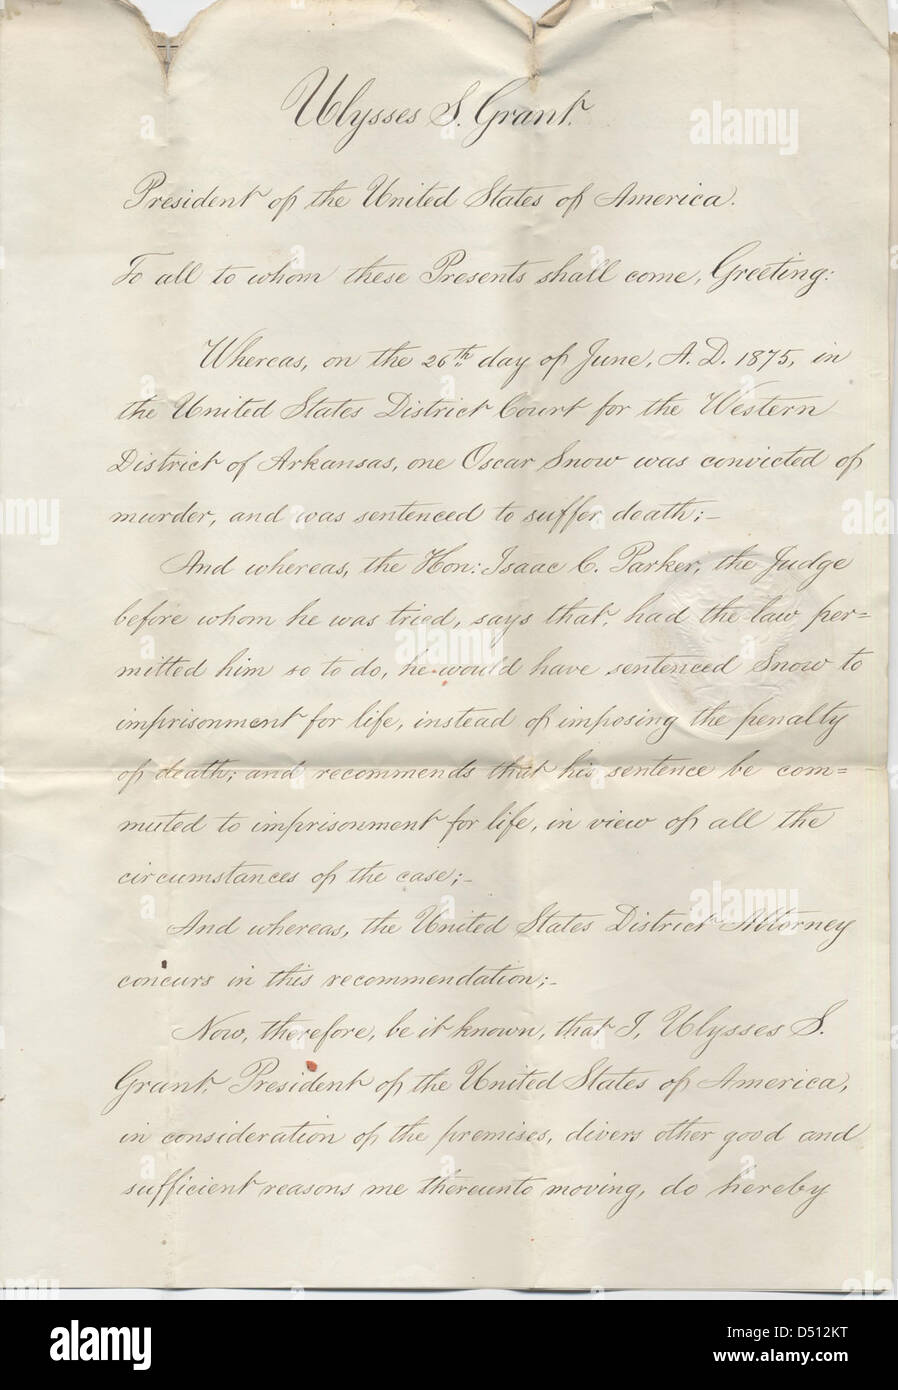 Ulysses S. Grant.
President of the United States of America.
To all to whom these Presents shall come, Greeting:
Whereas, on the 26th day of June, A.D. 1875, in
the United States District Court for the Western
District of Arkansas, one Oscar Snow was convicted of
murder, and was sentenced to suffer death;–
And whereas, the Hon: Isaac C. Parker, the Judge
before whom he was tried, says that, had the law per=
mitted him so to do, he would have sentenced Snow to
imprisonment for life, instead of imposing the penalty
of death; and recommends that his sentence be com=
muted to imprisonment for life, in view of all the
circumstances of the case;–
And whereas, the United States District Attorney
concurs in this recommendation;–
Now, therefore, be it known, that I, Ulysses S.
Grant, President of the United States of America,
in consideration of the premises, divers other good and
sufficient reasons me thereunto moving, do hereby
alamy
Image ID: D512KT
www.alamy.com